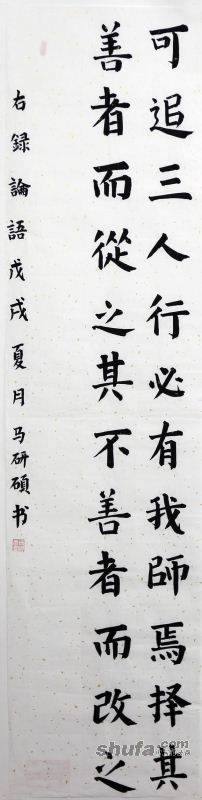 可追三人行必有我師焉择其
善者而從之其不善者而改之
右録論語戊戌夏月马研碩书
shufa.com